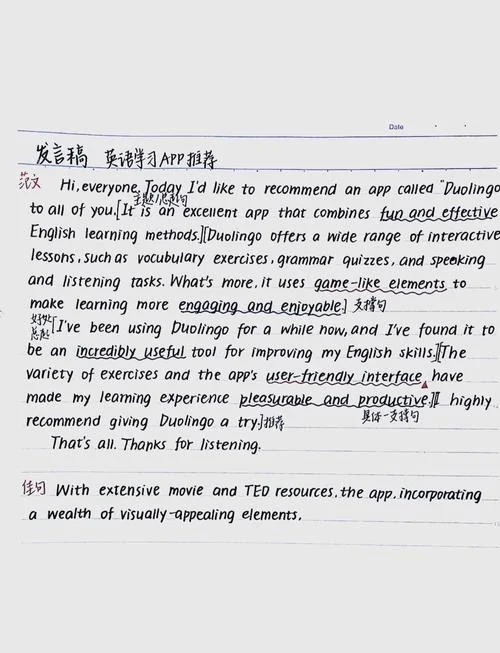 Date
发言稿 英语学习APP推荐
范文 Hi, everyone. Today I'd like to recommend an app called "Duolingo
主题/总起句
to all of you.[It is an excellent app that combines fun and effective
English learning methods.][Duolingo offers a wide range of interactive
lessons, such as vocubulary exercises, grammar quizzes, and speaking
and listening tasks. What's more, it uses game-like elements to
make learning more engaging and enjoyable.] 支撑句
好处总起 [I've been using Duolingo for a while now, and I've found it to
be an incredibly useful tool for improving my English skills.][The
variety of exercises and the app's user-friendly interface have
made my learning experience pleasurable and productive.][I highly
recommend giving Duolingo a try.]推荐 具体-支撑句
That's all. Thanks for listening.
佳句 With extensive movie and TED resources, the app, incorporating
a wealth of visually-appealing elements,